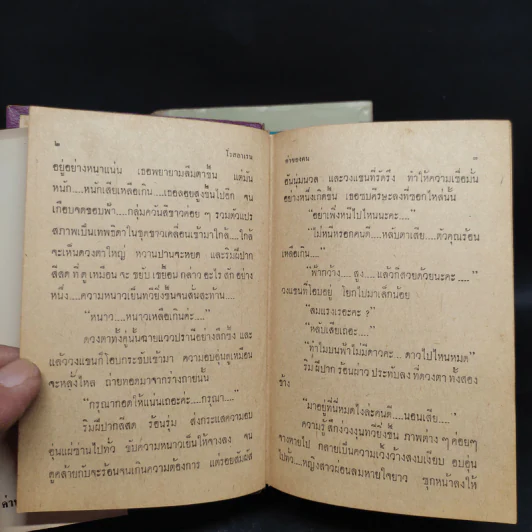 ๒
โรสลาเรน
อยู่อย่างหนาแน่น เธอพยายามลืมตาขึ้น แต่มัน
หนัก....หนักเสียเหลือเกิน....เธอลอยสูงขึ้นไปอีก จน
เกือบจดขอบฟ้า....กลุ่มควันสีขาวค่อย ๆ รวมตัวแปร
สภาพเป็นเทพธิดาในชุดขาวเคลื่อนเข้ามาใกล้....ใกล้
จะเห็นดวงตาใหญ่ หวานปานจะหยด และริมฝีปาก
สีสด ที่ดูเหมือนจะขยับเขยื้อนกล่าวอะไรสักอย่าง
หนึ่ง....ความหนาวเย็นทวียิ่งขึ้นจนสั่นสะท้าน....
"หนาว....หนาวเหลือเกินค่ะ...."
ดวงตาทั้งคู่นั้นฉายแววปรานีอย่างลึกซึ้ง และ
แล้ววงแขนก็โอบกระชับเข้ามา ความอบอุ่นดูเหมือน
จะหลั่งไหล ถ่ายทอดมาจากร่างกายนั้น
"กรุณากอดให้แน่นเถอะค่ะ....กรุณา...."
ริมฝีปากสีสด ร้อนรุ่ม ส่งกระแสความอบ
อุ่นแผ่ซ่านไปทั่ว ขับความหนาวเย็นให้จางลง จน
ดูคล้ายกับจะร้อนจนเกินความต้องการ แต่รอยสัมผัส
ค่าของคน
๓
อันนุ่มนวล และวงแขนที่รัดรึง ทำให้ความเชื่อมั่น
อย่างหนึ่งเกิดขึ้น เธอซบศีรษะลงที่ซอกไหล่นั้น
"อย่าเพิ่งหนีไปไหนนะคะ...."
"ไม่หนีหรอกคนดี....หลับตาเสีย....ตัวคุณร้อน
เหลือเกิน...."
"ฟ้ากว้าง....สูง....แล้วก็สวยด้วยนะคะ...."
วงแขนที่โอบอยู่ โยกไปมาเล็กน้อย
"ลมแรงเรอะคะ ?"
"หลับเสียเถอะ...."
"ทำไมบนฟ้าไม่มีดาวคะ..ดาวไปไหนหมด"
ริมฝีปากร้อนผ่าวประทับลงที่ดวงตาทั้งสอง
ข้าง
"มาอยู่ที่นี่หมดไงล่ะคนดี....นอนเสีย...."
ความรู้สึกง่วงงุนทวียิ่งขึ้น ภาพต่าง ๆ ค่อยๆ
จางหายไป กลายเป็นความเวิ้งว้างสงบเงียบ อบอุ่น
ไปทั่ว....หญิงสาวผ่อนลมหายใจยาว ซุกหน้าลงให้